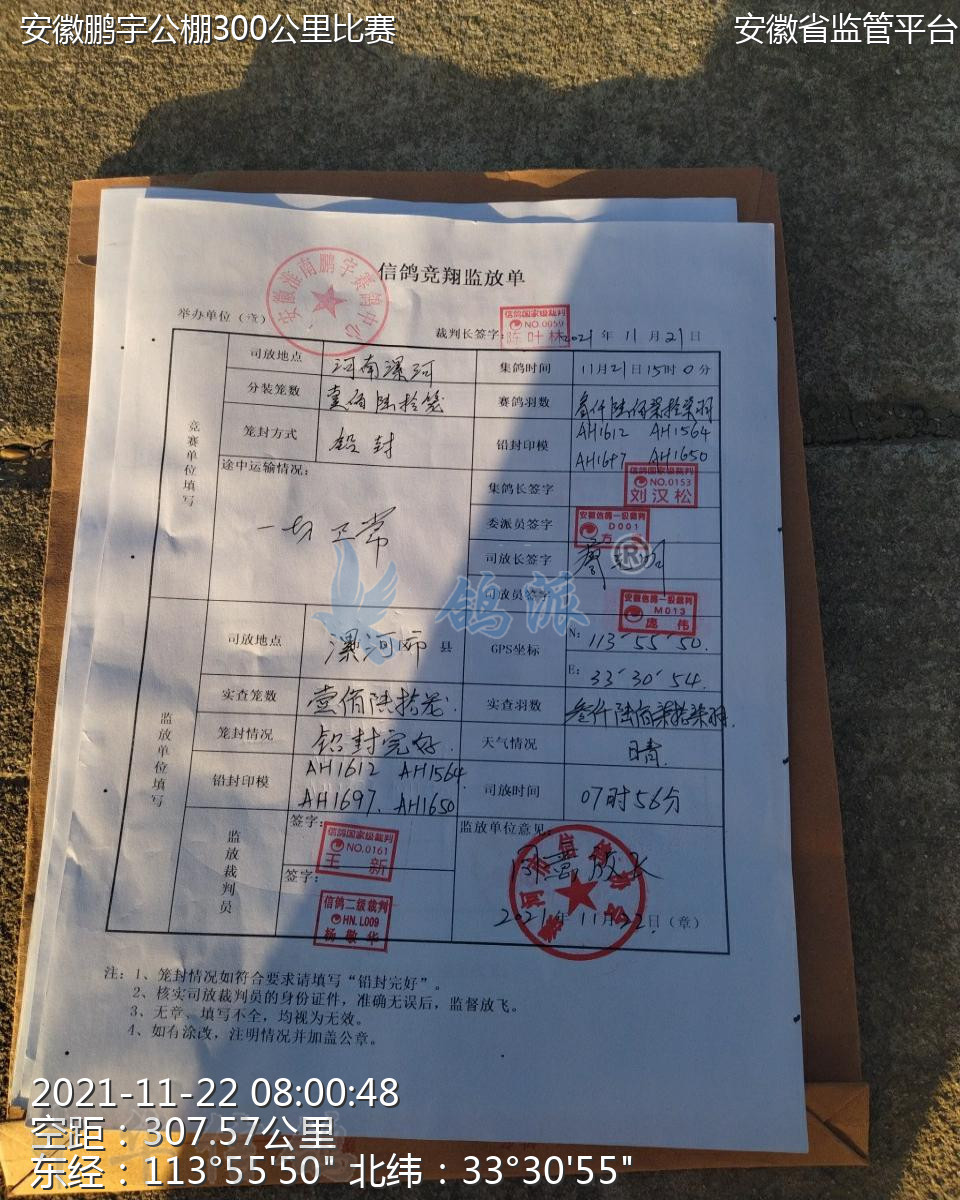 安徽鹏宇公棚300公里比赛
安徽省监管平台
信鸽竞翔监放单
安徽淮南鹏宇赛鸽中心
举办单位（章）
裁判长签字：
信鸽国家级裁判
NO.0059
陈叶林
2021年11月21日
竞赛单位填写
司放地点 河南漯河
集鸽时间 11月21日15时0分
分装笼数 壹佰陆拾笼
赛鸽羽数 叁仟陆佰柒拾柒羽
笼封方式 铅封
铅封印模 AH1612 AH1564
AH1697 AH1650
途中运输情况：
一切正常
集鸽长签字
信鸽国家级裁判
NO.0153
刘汉松
委派员签字
安徽信鸽一级裁判
D001
司放长签字
司放员签字
安徽信鸽一级裁判
M013
庞伟
®
鸽派
监放单位填写
司放地点 漯河市 县
GPS坐标
N: 113°55′50.
E: 33°30′54.
实查笼数 壹佰陆拾笼.
实查羽数 叁仟陆佰柒拾柒羽.
笼封情况 铅封完好.
天气情况 晴.
铅封印模 AH1612 AH1564
AH1697. AH1650
司放时间 07时56分
监放裁判员
签字：
信鸽国家级裁判
NO.0161
王新
签字：
信鸽二级裁判
HN.L009
杨敬华
监放单位意见：
同意放飞
2021年11月22日（章）
注：1、笼封情况如符合要求请填写“铅封完好”。
2、核实司放裁判员的身份证件，准确无误后，监督放飞。
3、无章、填写不全，均视为无效。
4、如有涂改，注明情况并加盖公章。
2021-11-22 08:00:48
空距：307.57公里
东经：113°55'50" 北纬：33°30'55"